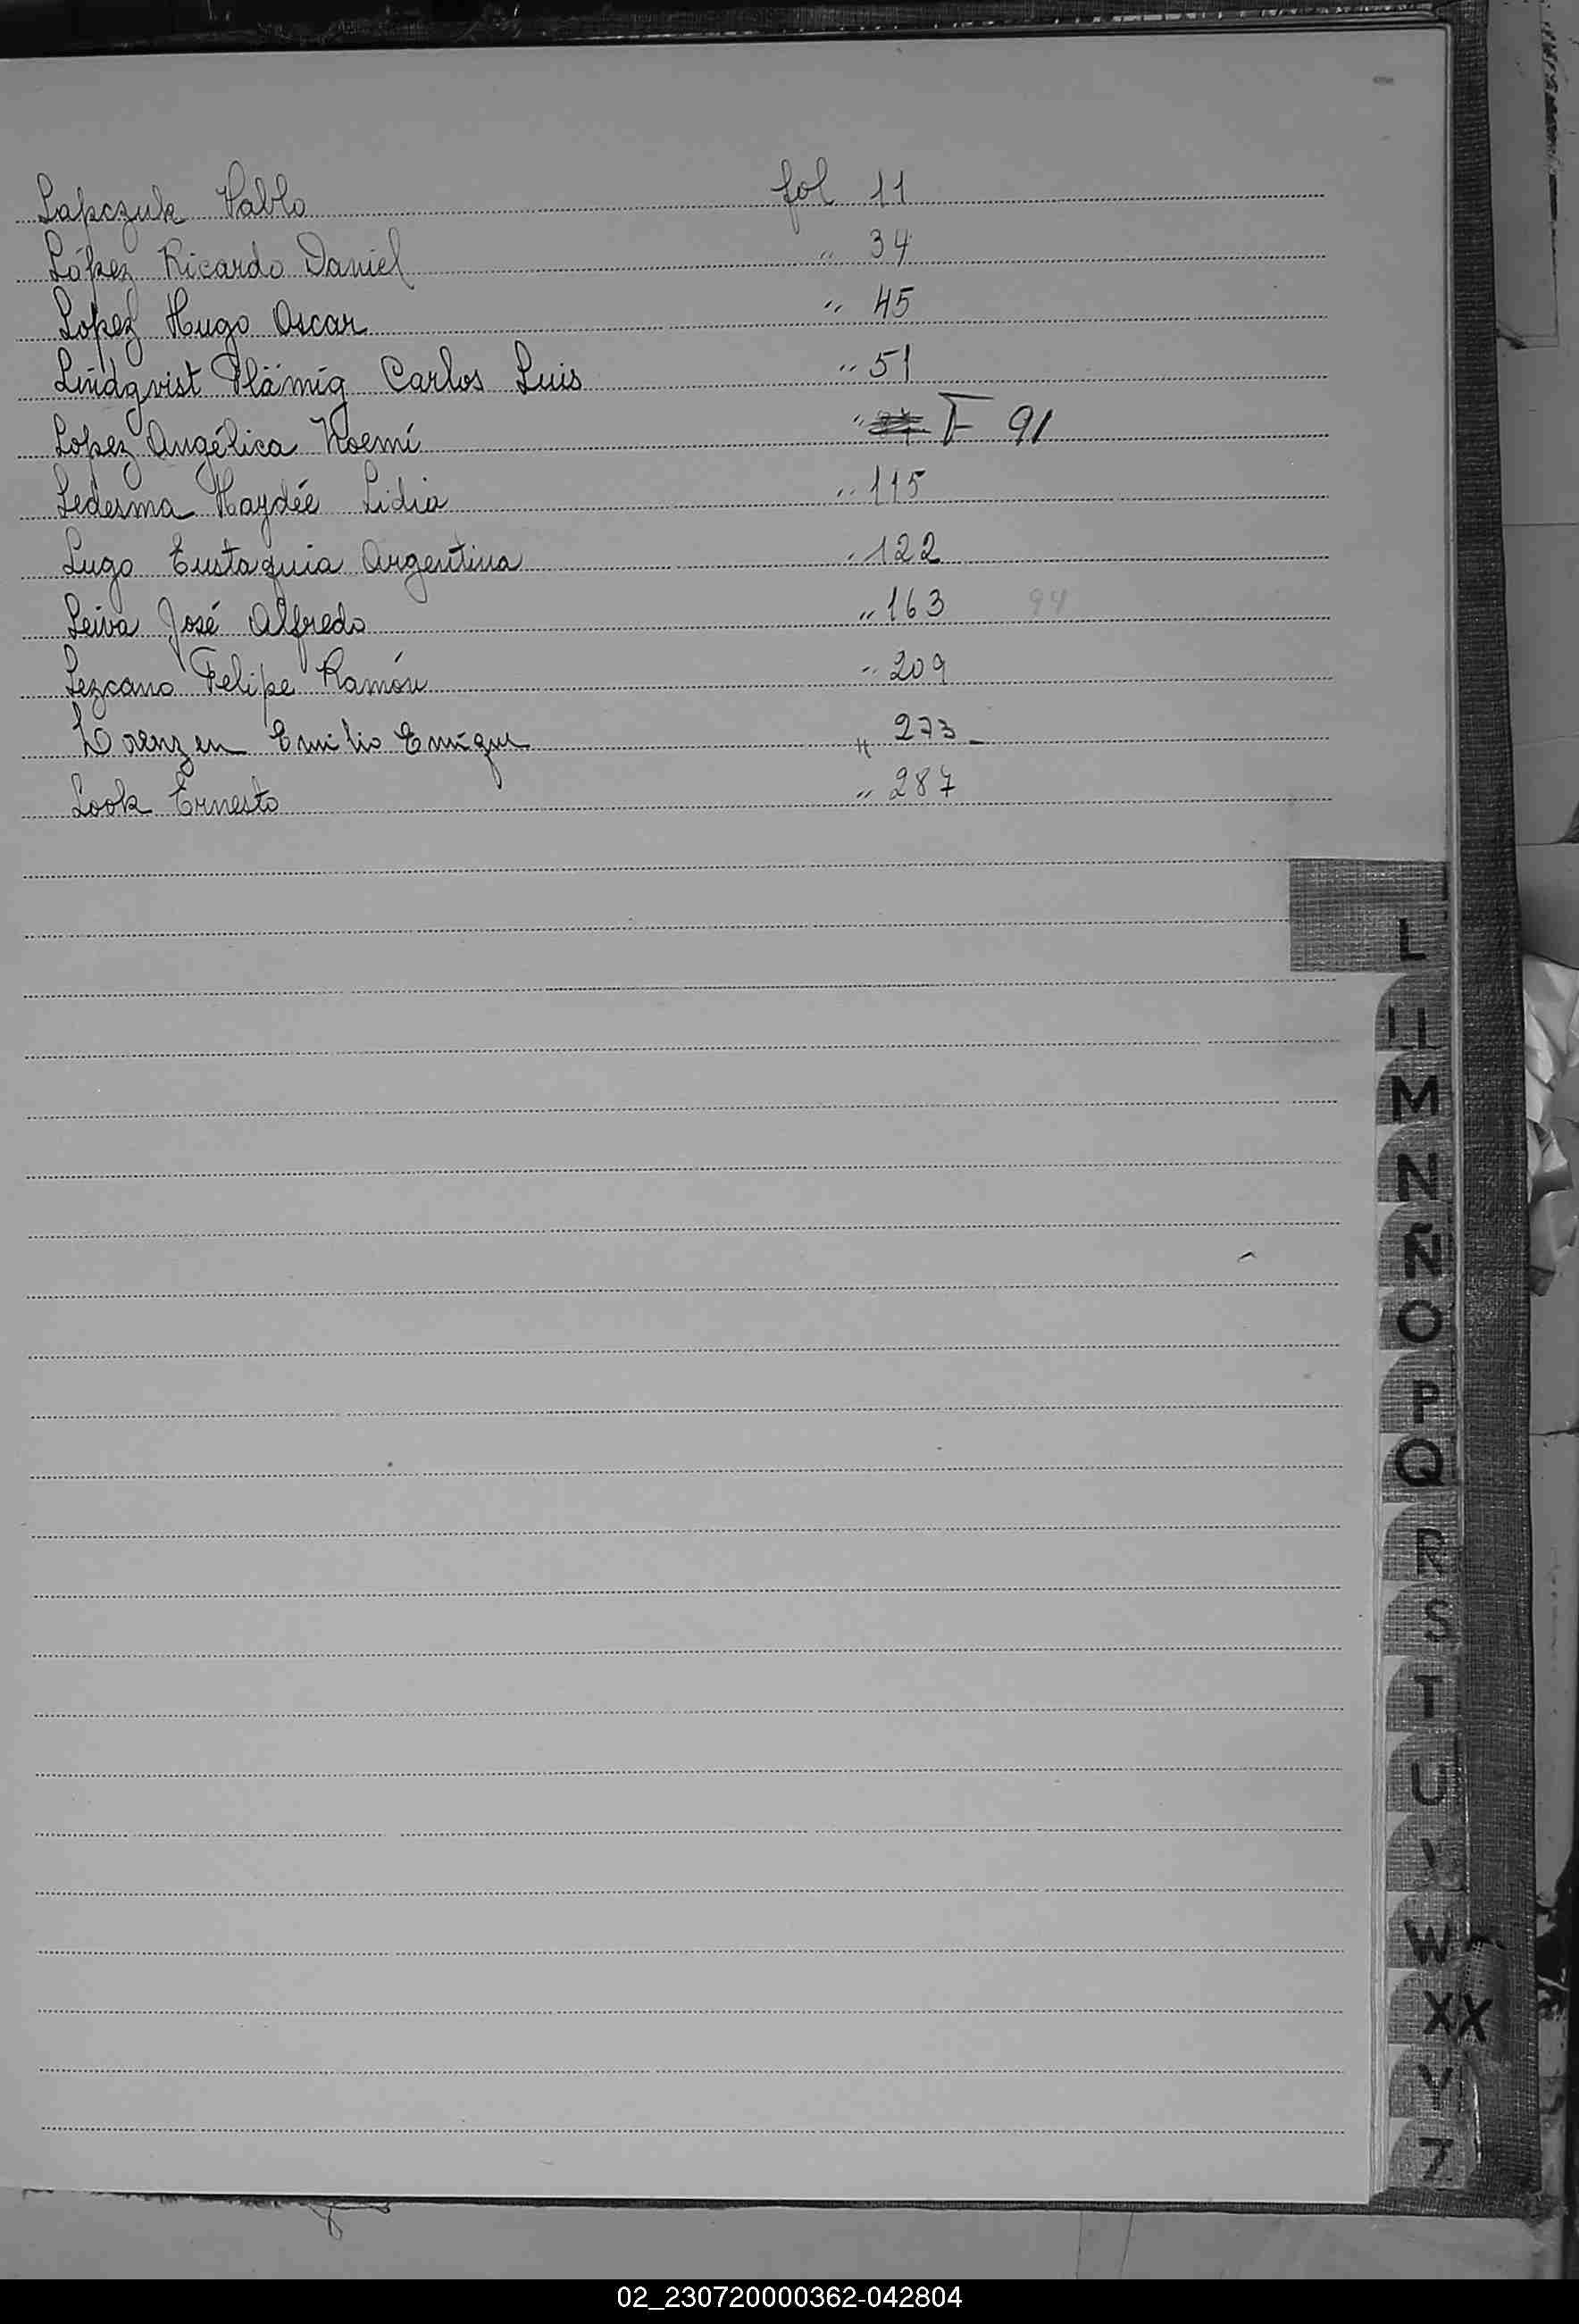 Lapczuk Pablo fol 11
López Ricardo Daniel " 34
Lopez Hugo Oscar " 45
Lindqvist Plämig Carlos Luis " 51
Lopez Angélica Noemí " F 91
Ledesma Haydée Lidia " 115
Lugo Eustaquia Argentina " 122
Leiva José Alfredo " 163 94
Lezcano Felipe Ramón " 209
Lorenzen Emilio Enrique " 273
Look Ernesto " 287
L
Ll
M
N
Ñ
O
P
Q
R
S
T
U
W
XX
Y
Z
02_230720000362-042804